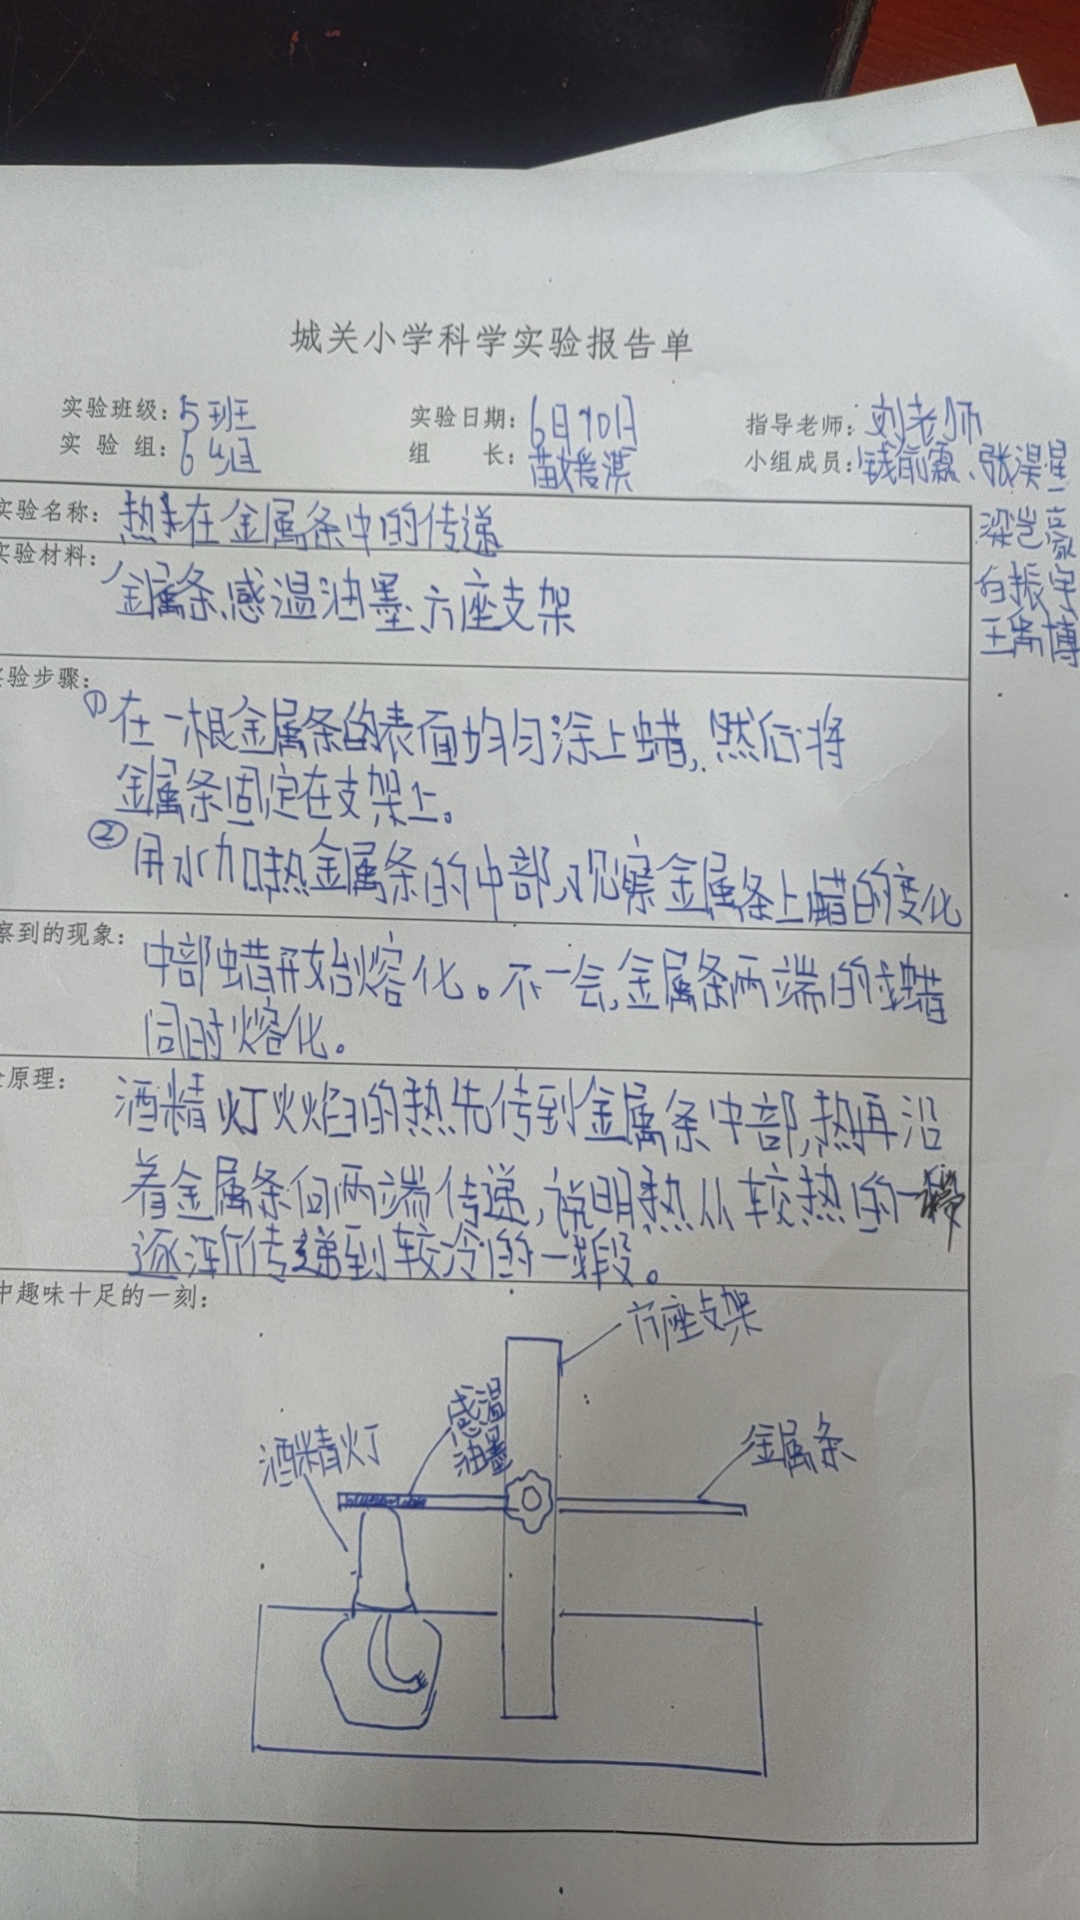 城关小学科学实验报告单
实验班级：5班 实验日期：6月10日 指导老师：刘老师
实 验 组：6组 组 长： 小组成员：钱俞霖、张淏星
梁岂豪
白振宇
王禹博
实验名称：热在金属条中的传递
实验材料：金属条、感温油墨、方座支架
实验步骤：
①在一根金属条的表面均匀涂上蜡，然后将
金属条固定在支架上。
②用水加热金属条的中部，观察金属条上蜡的变化
察到的现象：中部蜡开始熔化。不一会，金属条两端的蜡
同时熔化。
原理：酒精灯火焰的热先传到金属条中部，热再沿
着金属条向两端传递，说明热从较热的一
逐渐传递到较冷的一段。
中趣味十足的一刻：
方座支架
感温
油墨
酒精灯
金属条